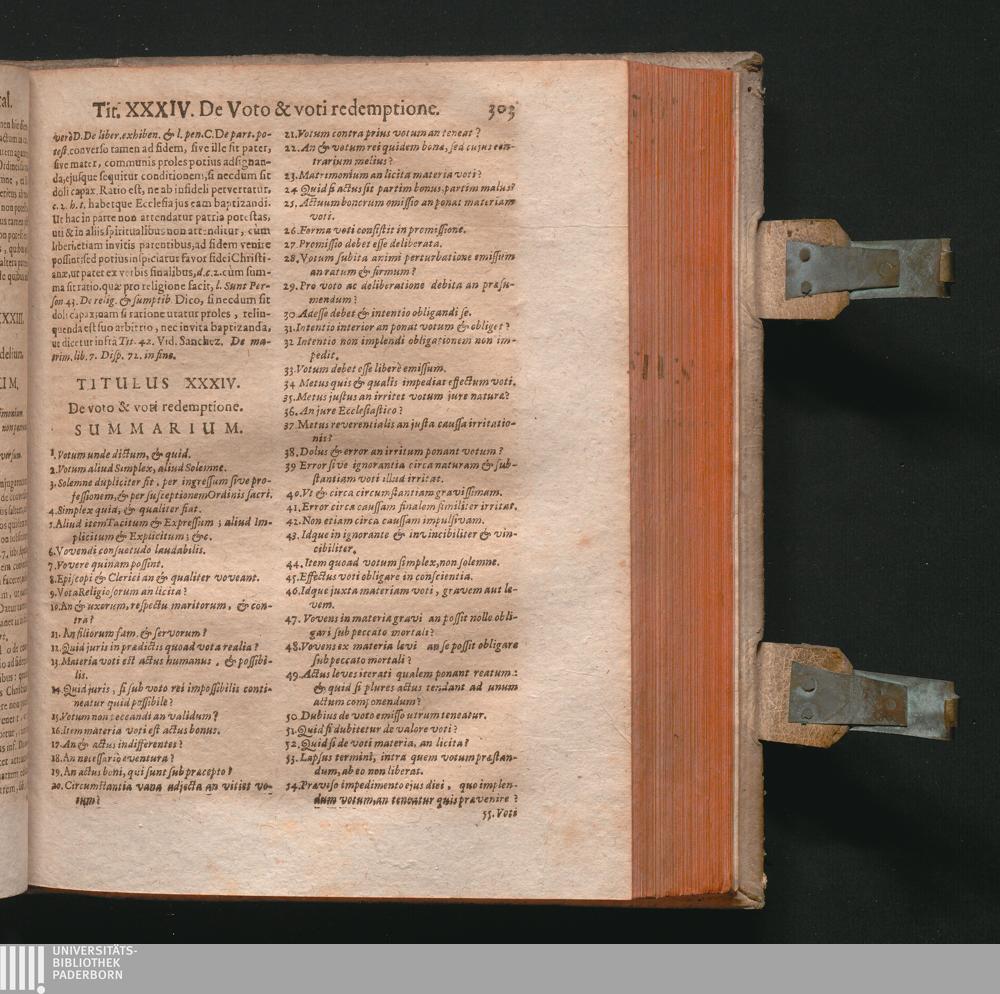 Tit. XXXIV. De Voto & voti redemptione. 303
verò D. De liber. exhiben. & l. pen. C. De part. po-
test. converso tamen ad fidem, sive ille sit pater,
sive mater, communis proles potius adsignan-
da, ejusque sequitur conditionem, si necdum sit
doli capax. Ratio est, ne ab infideli pervertatur,
c. 2. h. t. habetque Ecclesia jus eam baptizandi.
Ut hac in parte non attendatur patria potestas,
uti & in aliis spiritualibus non attenditur, cùm
liberi, etiam invitis parentibus, ad fidem venire
possint: sed potius inspiciatur favor fidei Christi-
anæ, ut patet ex verbis finalibus, d. c. 2. cùm sum-
ma sit ratio, quæ pro religione facit, l. Sunt Per-
son 43. De relig. & sumptib. Dico, si necdum sit
doli capax; nam si ratione utatur proles, relin-
quenda est suo arbitrio, nec invita baptizanda,
ut dicetur infrà Tit. 42. Vid. Sanchez. De ma-
trim. lib. 7. Disp. 72. in fine.
TITULUS XXXIV.
De voto & voti redemptione.
SUMMARIUM.
1. Votum unde dictum, & quid.
2. Votum aliud Simplex, aliud Solemne.
3. Solemne dupliciter fit, per ingressum sive pro-
fessionem, & per susceptionem Ordinis sacri.
4. Simplex quid, & qualiter fiat.
5. Aliud item Tacitum & Expressum; aliud Im-
plicitum & Explicitum; &c.
6. Vovendi consuetudo laudabilis.
7. Vovere quinam possint.
8. Episcopi & Clerici an & qualiter voveant.
9. Vota Religiosorum an licita?
10. An & uxorum, respectu maritorum, & con-
tra?
11. An filiorum fam. & servorum?
12. Quid juris in prædictis quoad vota realia?
13. Materia voti est actus humanus, & possibi-
lis.
14. Quid juris, si sub voto rei impossibilis conti-
neatur quid possibile?
15. Votum non peccandi an validum?
16. Item materia voti est actus bonus.
17. An & actus indifferentes?
18. An necessariò eventura?
19. An actus boni, qui sunt sub præcepto?
20. Circumstantia vana adjecta an vitiet vo-
tum?
21. Votum contra prius votum an teneat?
22. An & votum rei quidem bonæ, sed cujus con-
trarium melius?
23. Matrimonium an licita materia voti?
24. Quid si actus sit partim bonus, partim malus?
25. Actuum bonorum omissio an ponat materiam
voti.
26. Forma voti consistit in promissione.
27. Promissio debet esse deliberata.
28. Votum subita animi perturbatione emissum
an ratum & firmum?
29. Pro voto ac deliberatione debita an præsu-
mendum?
30. Adesse debet & intentio obligandi se.
31. Intentio interior an ponat votum & obliget?
32. Intentio non implendi obligationem non im-
pedit.
33. Votum debet esse liberè emissum.
34. Metus quis & qualis impediat effectum voti.
35. Metus justus an irritet votum jure naturæ?
36. An jure Ecclesiastico?
37. Metus reverentialis an justa caussa irritatio-
nis?
38. Dolus & error an irritum ponant votum?
39. Error sive ignorantia circa naturam & sub-
stantiam voti illud irritat.
40. Vt & circa circumstantiam gravissimam.
41. Error circa caussam finalem similiter irritat.
42. Non etiam circa caussam impulsivam.
43. Idque in ignorante & invincibiliter & vin-
cibiliter.
44. Item quoad votum simplex, non solemne.
45. Effectus voti obligare in conscientia.
46. Idque juxta materiam voti, gravem aut le-
vem.
47. Vovens in materia gravi an possit nolle obli-
gari sub peccato mortali?
48. Vovens ex materia levi an se possit obligare
sub peccato mortali?
49. Actus leves iterati qualem ponant reatum:
& quid si plures actus tendant ad unum
actum componendum?
50. Dubius de voto emisso utrum teneatur.
51. Quid si dubitetur de valore voti?
52. Quid si de voti materia, an licita?
53. Lapsus termini, intra quem votum præstan-
dum, ab eo non liberat.
54. Præviso impedimento ejus diei, quo implen-
dum votum, an teneatur quis prævenire?
55. Voti
UNIVERSITÄTS-
BIBLIOTHEK
PADERBORN